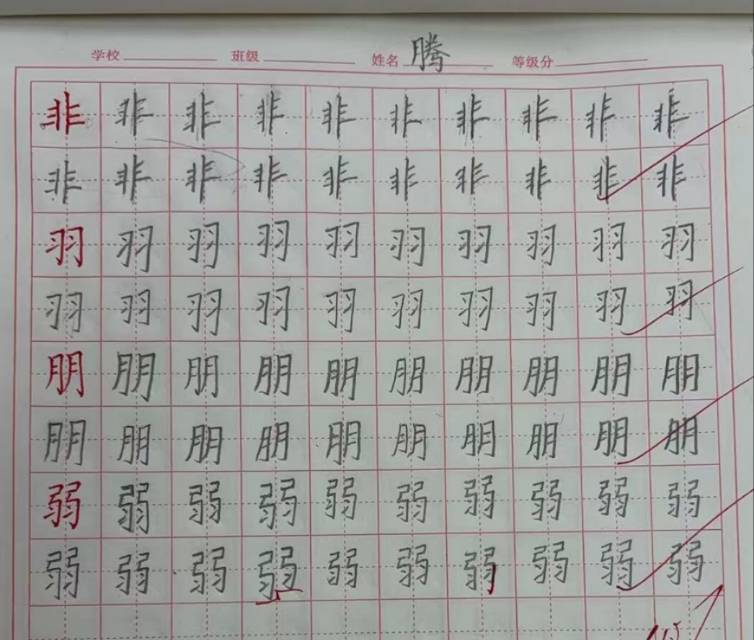 学校 班级 姓名 腾 等级分
非 非 非 非 非 非 非 非 非 非
非 非 非 非 非 非 非 非 非 非
羽 羽 羽 羽 羽 羽 羽 羽 羽 羽
羽 羽 羽 羽 羽 羽 羽 羽 羽 羽
朋 朋 朋 朋 朋 朋 朋 朋 朋 朋
朋 朋 朋 朋 朋 朋 朋 朋 朋 朋
弱 弱 弱 弱 弱 弱 弱 弱 弱 弱
弱 弱 弱 弱 弱 弱 弱 弱 弱 弱